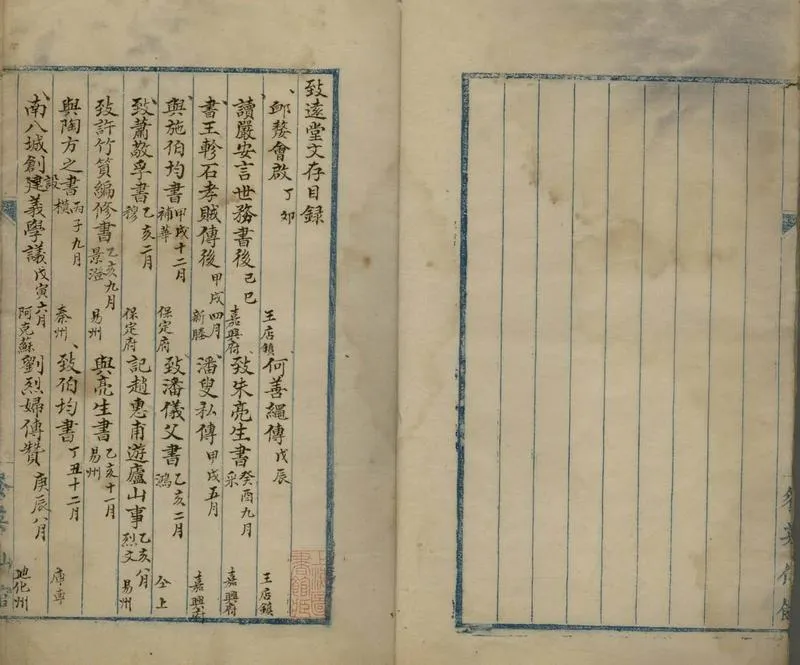 致遠堂文存目錄
邱嫠會啟 丁卯 王店鎮 何善繩傳 戊辰 王店鎮
讀嚴安言世務書後 己巳 嘉興府 致朱亮生書 癸酉九月 采 嘉興府
書王軫石孝賊傳後 甲戌四月 新塍 潘叟私傳 甲戌五月 嘉興府
與施伯均書 甲戌十二月 補華 保定府 致潘儀父書 乙亥二月 鴻 仝上
致蕭敬孚書 乙亥二月 穆 保定府 記趙惠甫遊廬山事 乙亥八月 烈文 易州
致許竹篔編修書 乙亥九月 景澄 易州 與亮生書 乙亥十一月 易州
與陶方之書 丙子九月 模 秦州 致伯均書 丁丑十二月 庫車
南八城創建設義學議 戊寅六月 阿克蘇 劉烈婦傳贊 庚辰八月 迪化州